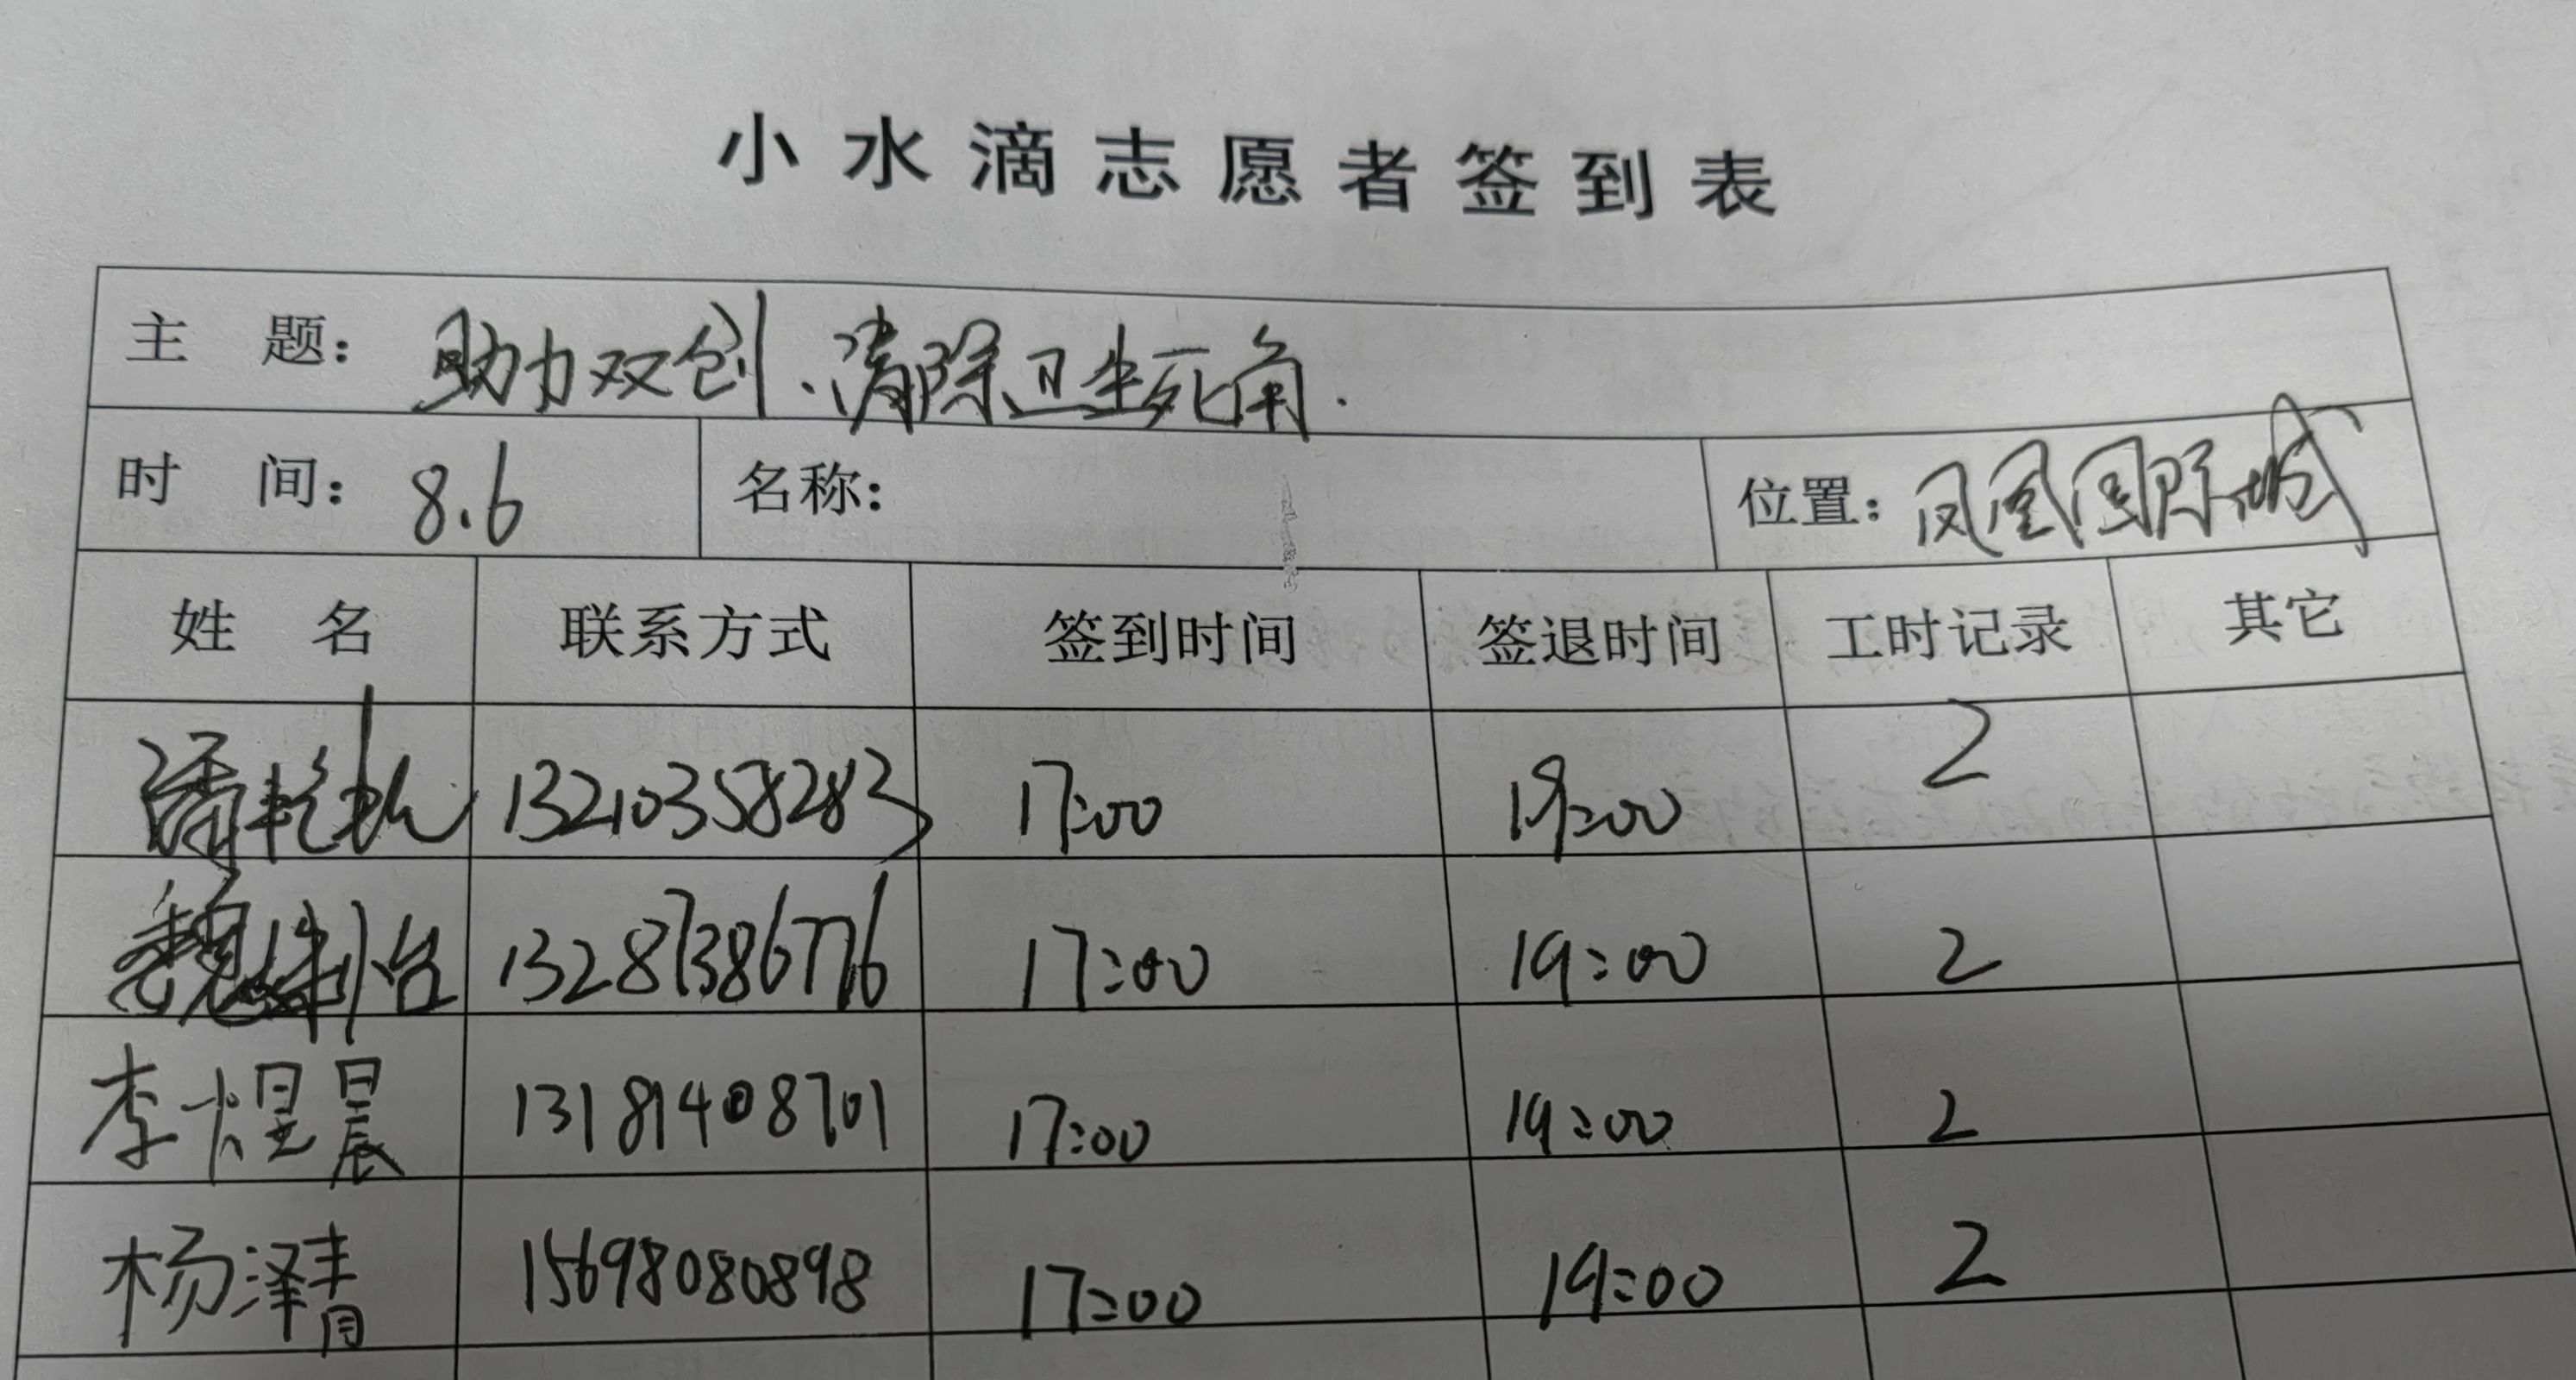 小水滴志愿者签到表
主 题： 助力双创、清除卫生死角.
时 间： 8.6 名称： 位置： 凤凰国际城
姓 名 联系方式 签到时间 签退时间 工时记录 其它
13210358283 17:00 19:00 2
13287386776 17:00 19:00 2
李煜晨 13181408701 17:00 19:00 2
杨泽青 15698080898 17:00 19:00 2